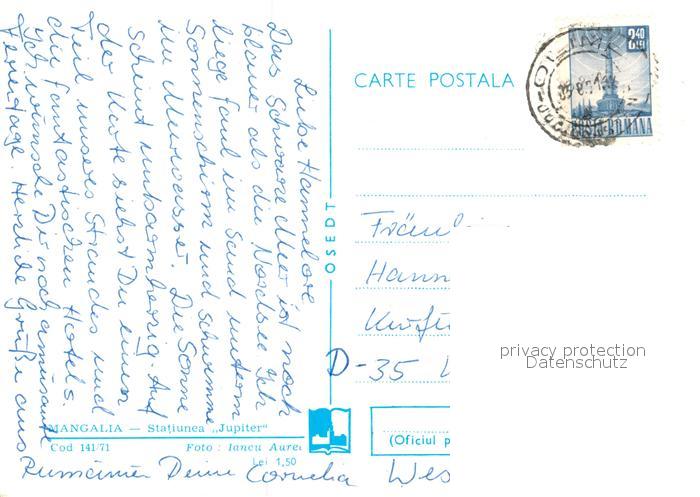 Liebe Hannelore
Das Schwarze Meer ist noch
blauer als die Nordsee. Ich
liege faul im Sand unterm
Sonnenschirm und schwimme
im Meerwasser. Die Sonne
scheint unbarmherzig. Auf
der Karte siehst Du einen
Teil unseres Strandes und
die fantastischen Hotels.
Ich wünsche Dir noch amüsante
Ferientage. Herzliche Grüße aus
Rumänien Deine Cornelia
MANGALIA — Stațiunea „Jupiter"
Cod 141/71 Foto: Iancu Aurel
Lei 1,50
OSEDT
CARTE POSTALA
2,40
ROMANA
Fräul
Hann
Kurfü
D-35
(Oficiul p
Wes
privacy protection
Datenschutz